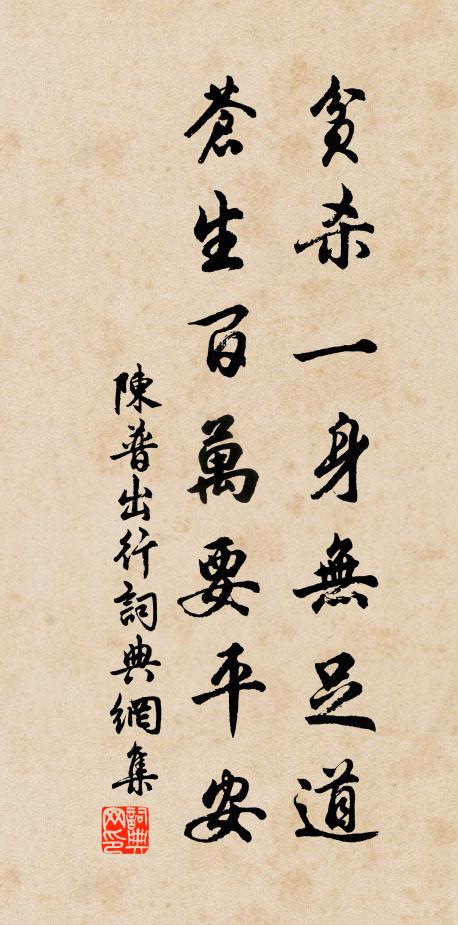 貧杀一身無足道
蒼生百萬要平安
陳普出行詞典網集
詞典网印